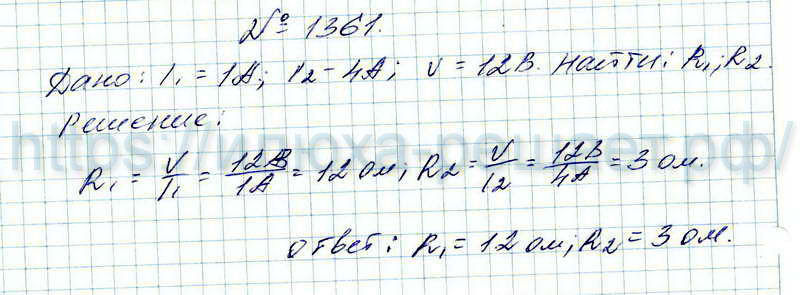 № 1361.
Дано: I₁ = 1А; I₂ - 4А; V = 12В. Найти: R₁; R₂.
Решение:
R₁ = V/I₁ = 12В/1А = 12 ом; R₂ = V/I₂ = 12В/4А = 3 ом.
ответ: R₁ = 12 ом; R₂ = 3 ом.
https://илюха-решает.рф/